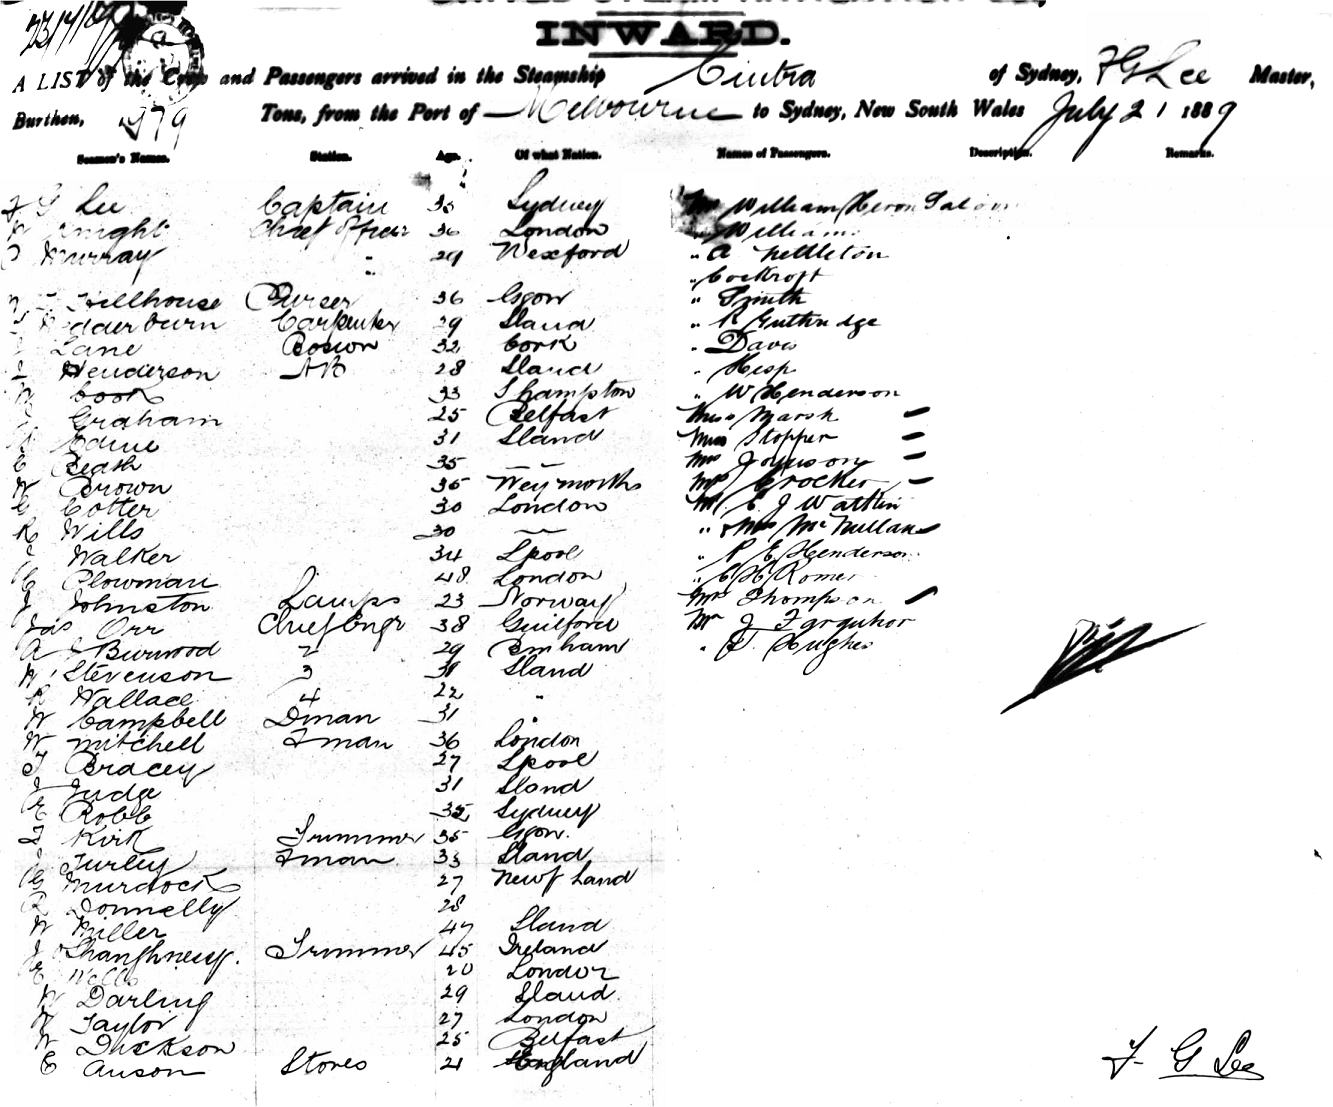 INWARD.
A LIST of the Crew and Passengers arrived in the Steamship Cintra of Sydney, F G Lee Master,
Burthen, 1979 Tons, from the Port of Melbourne to Sydney, New South Wales July 21 1889
Seamen's Names. Station. Age. Of what Nation. Names of Passengers. Description. Remarks.
F G Lee Captain 35 Sydney Mr William Heron Saloon
Knight Chief Officer 36 London " Williams
Murray " 29 Wexford " A Nettleton
" Cockroft
Hillhouse Purser 36 Ggow " Smith
Wedderburn Carpenter 29 Sland " R Guthridge
Lane Boswn 32 Cork " Davis
Henderson AB 28 Sland " Hisp
Cook 33 Shampton " W Henderson
Graham 25 Belfast Miss Marsh –
Edine 31 Sland Miss Stopper –
Beath 35 — Mrs Johnson –
W Brown 35 Weymouth Mrs Crocker –
C Cotter 30 London Mr E. J Watkin
R Wills 30 — " & Mrs McNullan
Walker 34 Lpool " P E Henderson
Plowman 48 London " C H Romer
J Johnston Lamps 23 Norway Mrs Thompson
Jas Orr Chief Engr 38 Guilford Mr J Farquhar
A J Burwood 2 29 Bmham " T. Hughes
W Stevenson 3 31 Sland
R Wallace 4 22 "
W Campbell Dman 31 "
W Mitchell Fman 36 London
T Bracey 27 Lpool
J Judge 31 Sland
E Robb 35 Sydney
Kirk Trimmer 35 Ggow.
Turley Fman 33 Sland
G Murdock 27 Newf Land
R Donnelly 28
W Miller 47 Sland
J OShanghnessy. Trimmer 45 Ireland
E Wells 20 London
W Darling 29 Sland.
W Taylor 27 London
W Dickson 25 Belfast
C Anson Stores 21 England
F G Lee